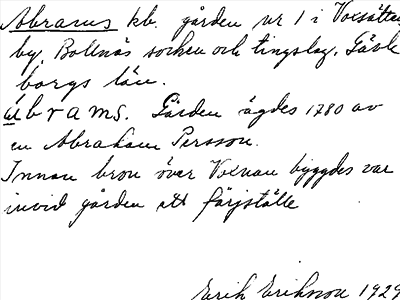 Abrams kb. gården nr 1 i Voxsätter
by, Bollnäs socken och tingslag. Gävle
borgs län.
ábrams. Gården ägdes 1780 av
en Abraham Persson.
Innan bron över Voxnan byggdes var
invid gården ett färjställe
Erik Erikson 1929